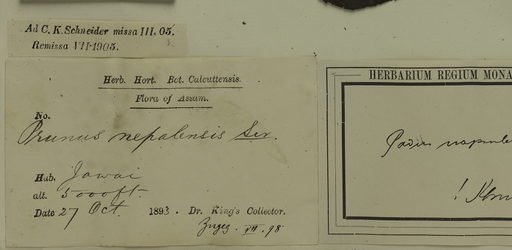 Ad C. K. Schneider missa III. 05.
Remissa VII 1905.
Herb. Hort. Bot. Calcuttensis.
Flora of Assam.
No.
Prunus nepalensis Ser.
Hab. Jowai
alt. 5000 ft.
Date 27 Oct. 1893. Dr. King's Collector.
VII. 98
HERBARIUM REGIUM MONA
Padus napaule
!